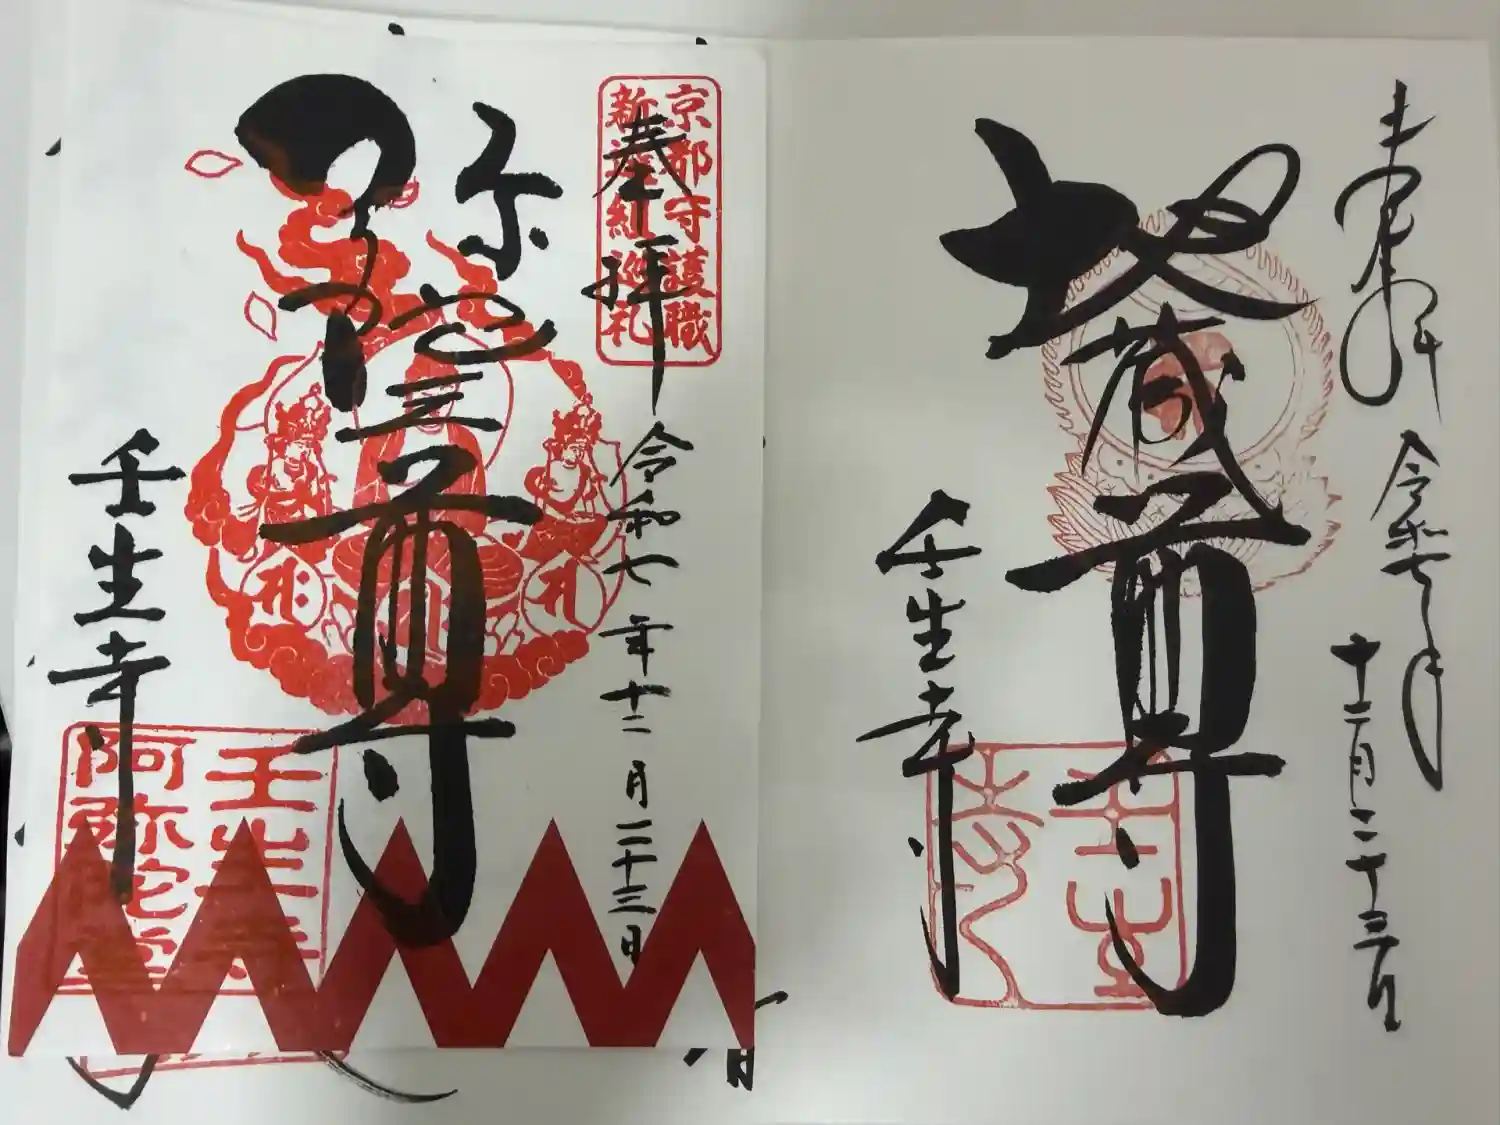 奉拝
令和七年
十二月二十三日
地蔵尊
壬生寺
京都守護職
新選組巡礼
奉拝
令和七年十二月二十三日
阿弥陀三尊
壬生寺
壬生寺
阿弥陀堂